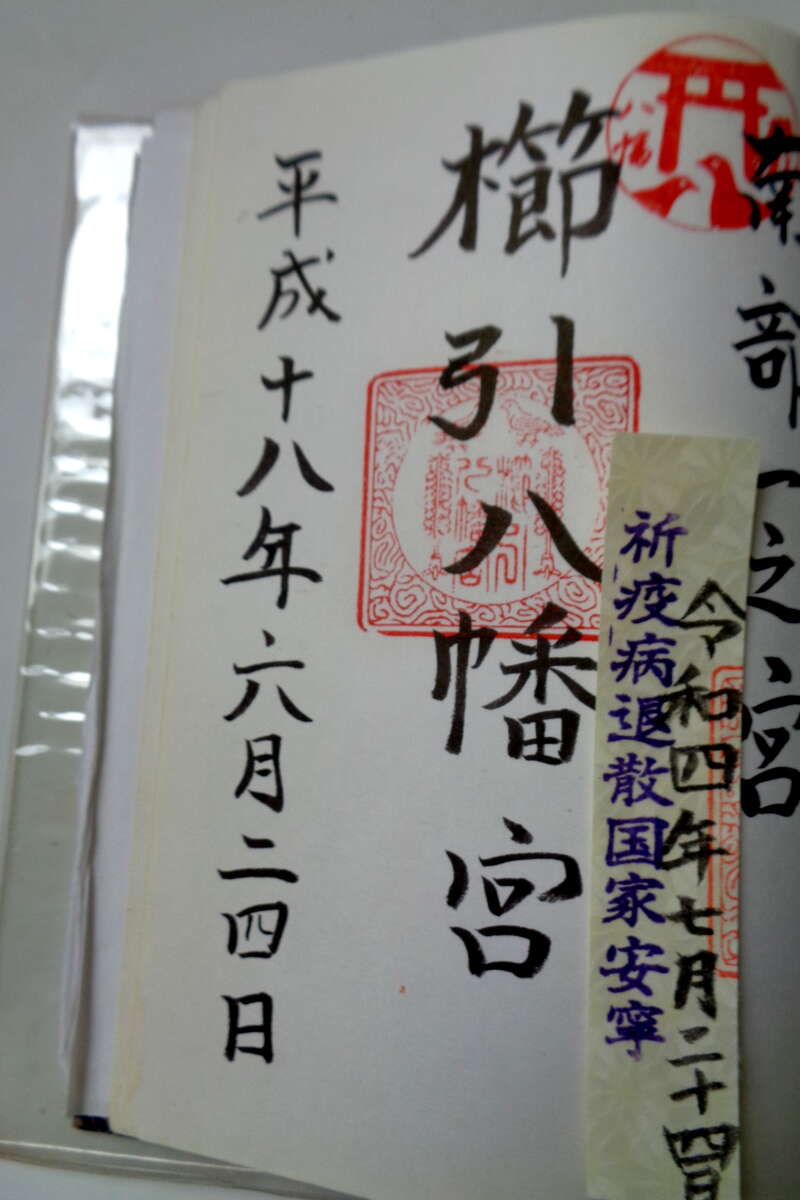 南部一之宮
櫛引八幡宮
平成十八年六月二四日
令和四年七月二十四日
祈疫病退散国家安寧
八幡